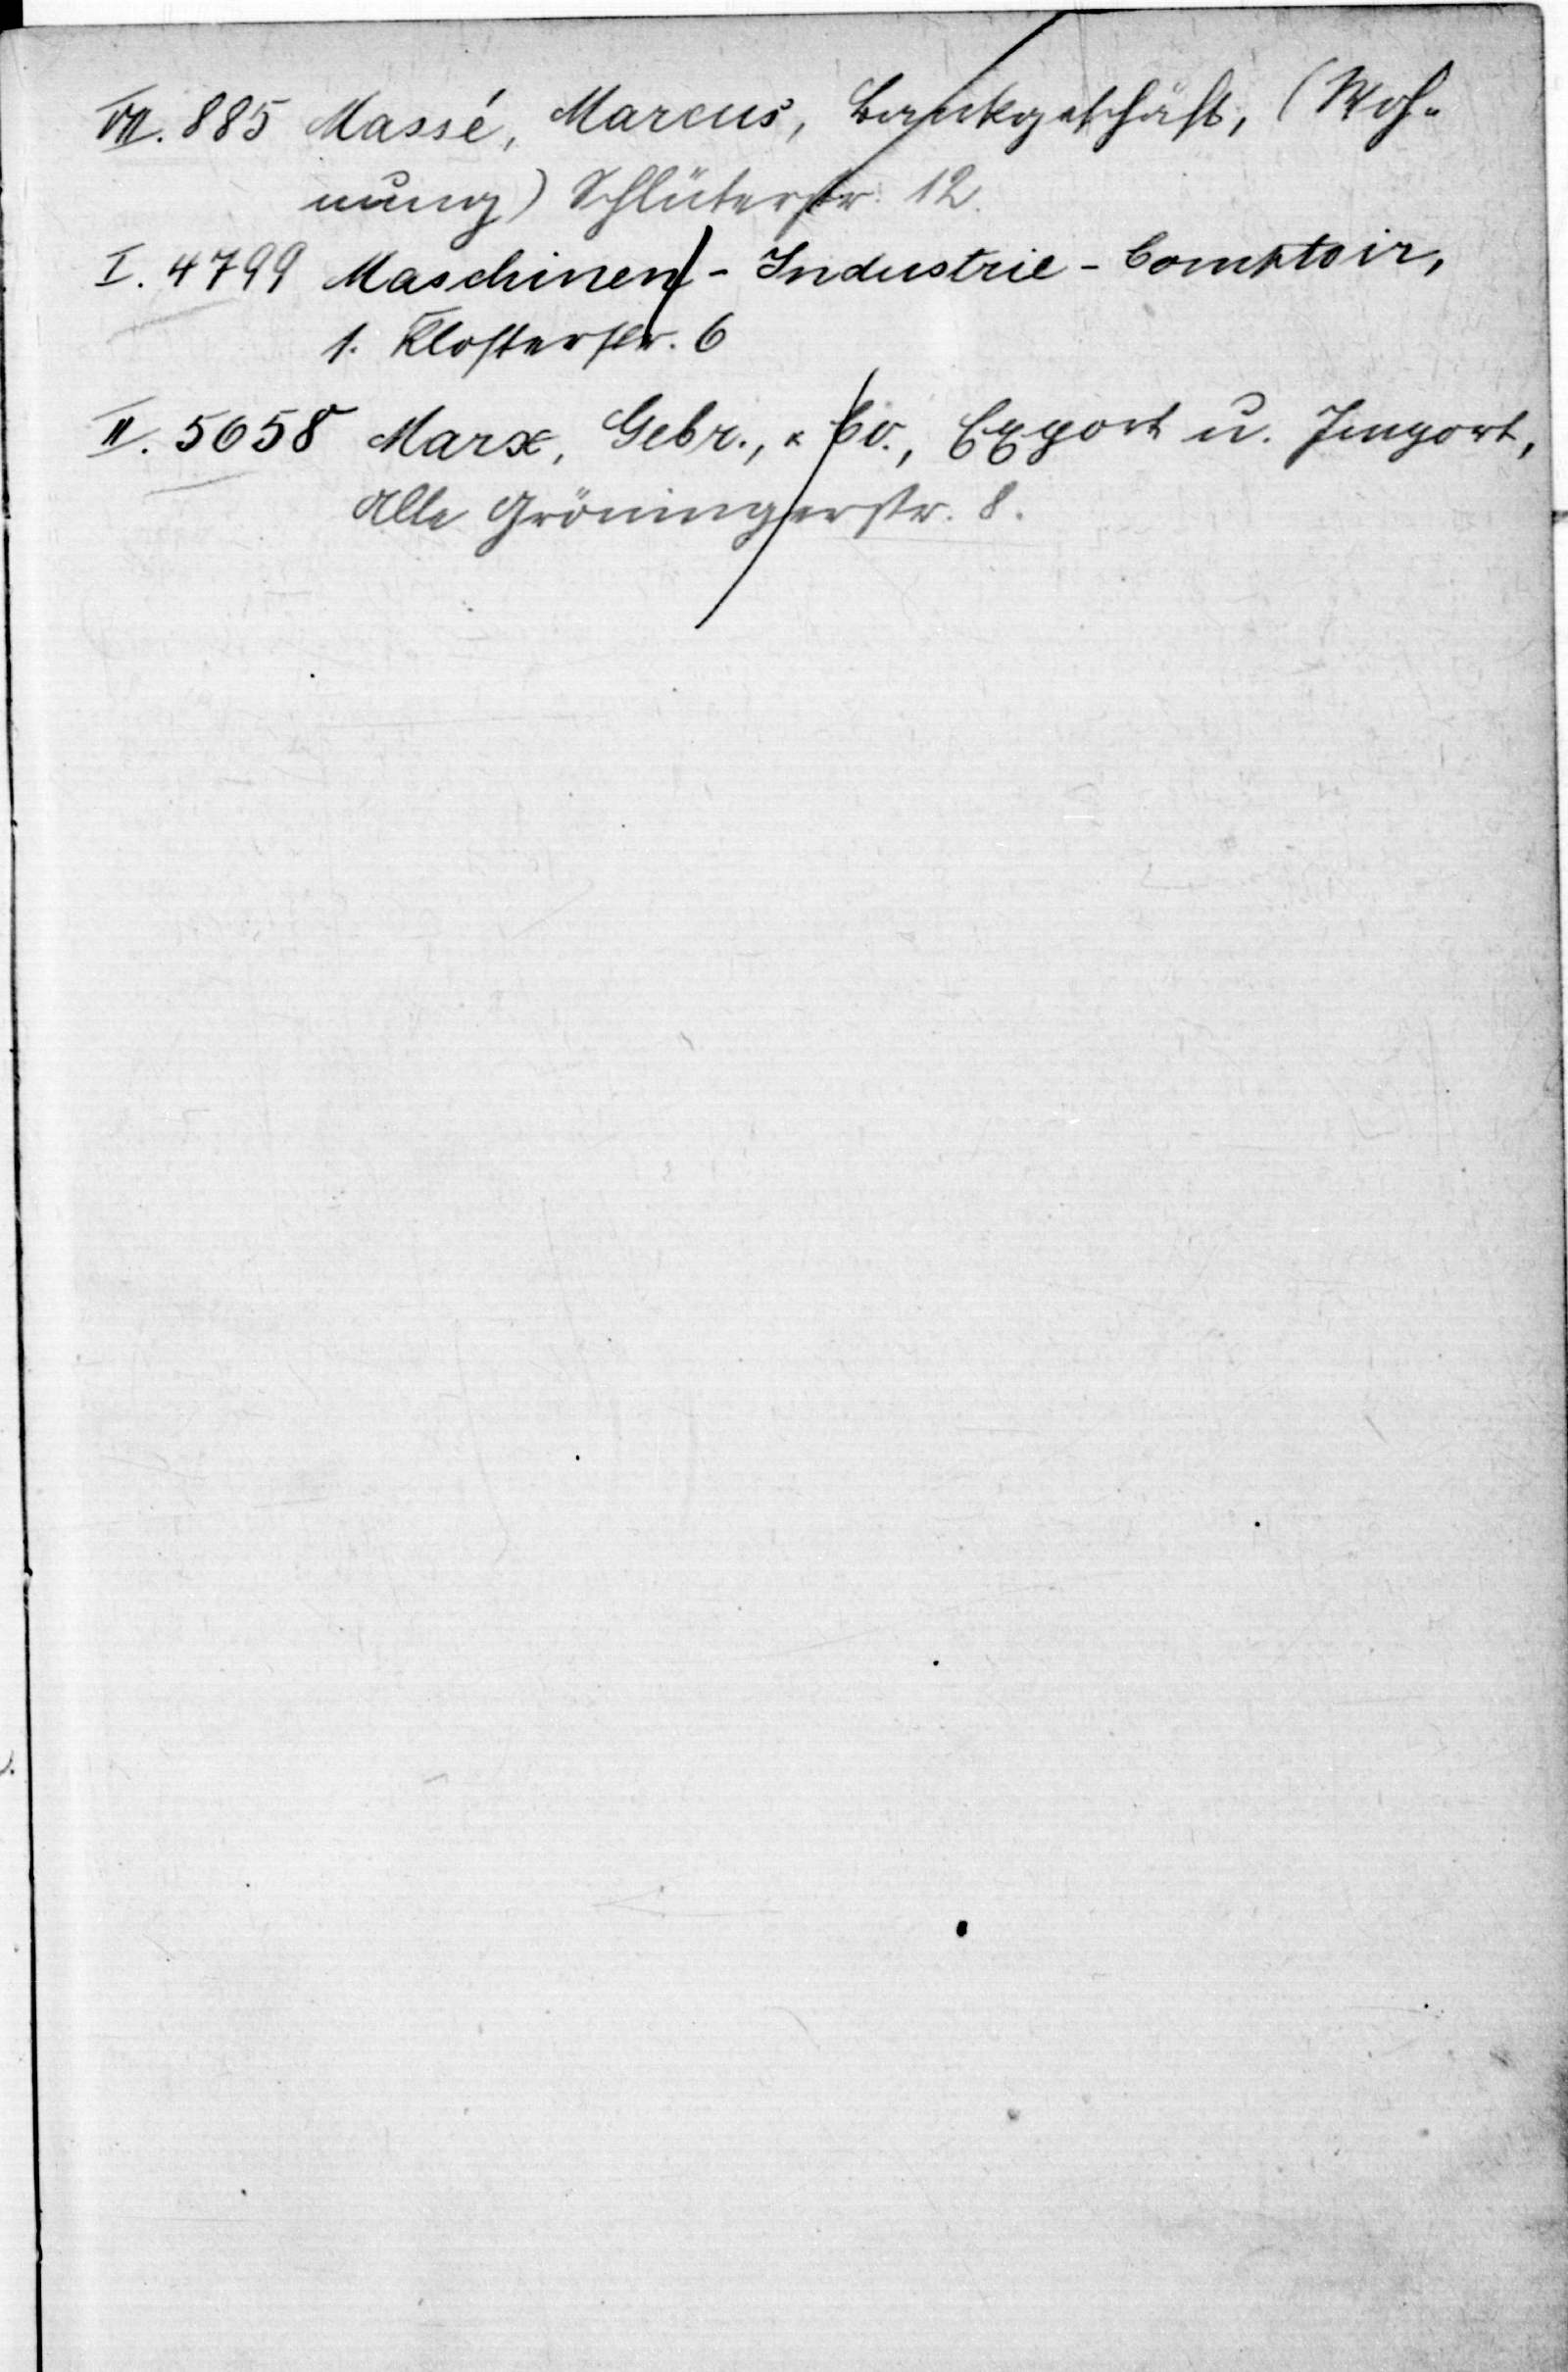 VII. 885 Massé, Marcus, Bankgeschäft, (Woh-
nung) Schlüterstr. 12.
I. 4799 Maschinen-Industrie-Comptoir,
1. Klosterstr. 6
II. 5658 Marx, Gebr., & Co., Export u. Import,
Alte Gröningerstr. 8.